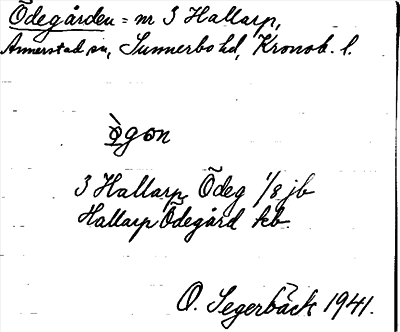 Ödegården = nr 3 Hallarp,
Annerstad sn, Sunnerbo hd, Kronob. l.
ò̀gən
3 Hallarp, Ödeg 1/8 jb
Hallarp Ödegård kb
O. Segerbäck 1941.